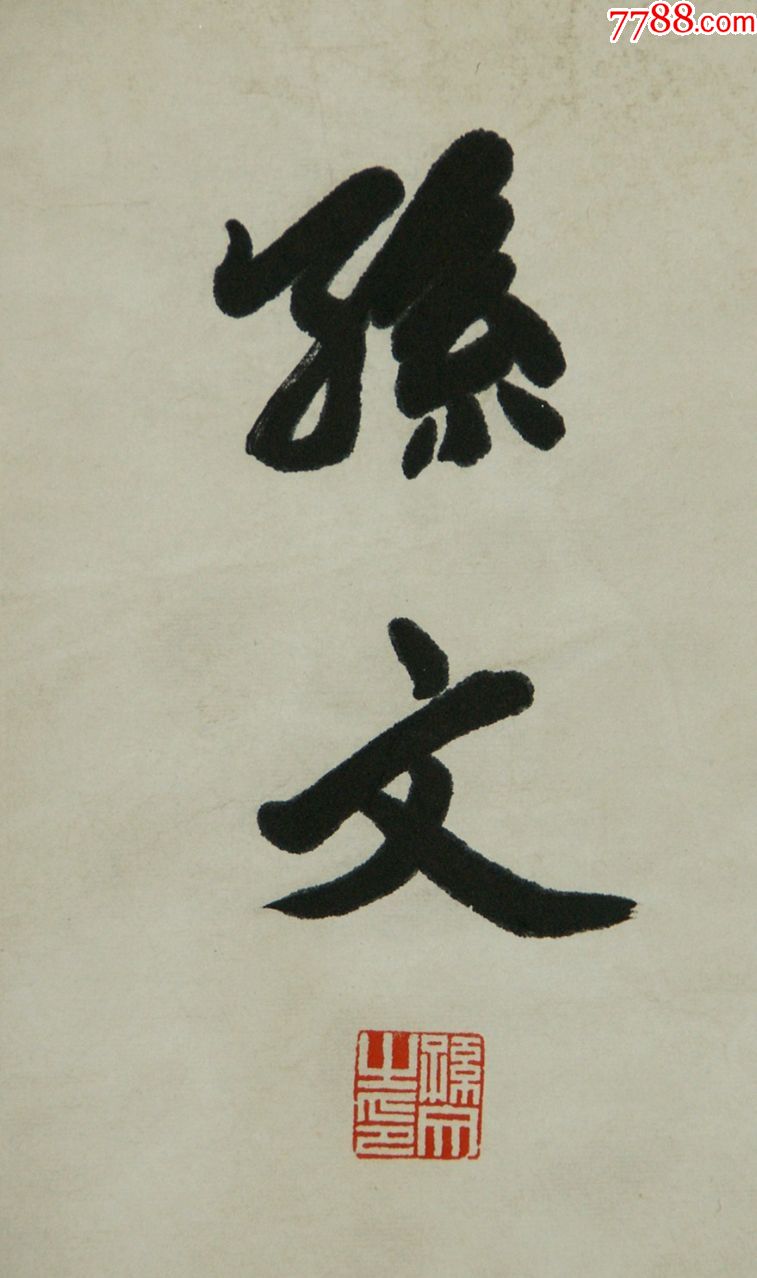 7788.com
孫文
孫文之印